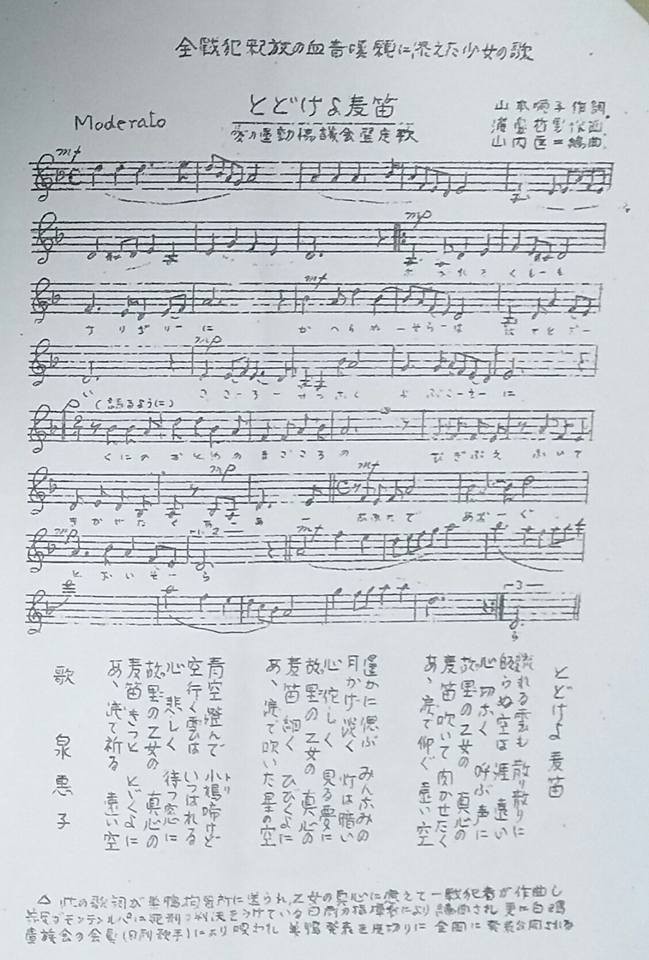 全戦犯釈放の血書嘆願に添えた少女の歌
とどけよ麦笛
Moderato
愛の運動協議会選定歌
山本順子作詞
作曲
山内匡二編曲
mf
mp
さりぢりーに
mf
mp
こころー
よぶこーえーに
P (語るように)
くにのおとめのまごころの
むぎぶえ ふいて
mp
mf
きかせたく ああ
なみだで あおーぐ
mp
とおいそーら
1.2
mf
3
とどけよ 麦笛
流れる雲も 散り散りに
帰らぬ空は 涯 遠い
心切なく 呼ぶ声に
故里の乙女の 真心の
麦笛 吹いて 聞かせたく
あゝ 涙で仰ぐ 遠い空
遥かに偲ぶ みんなみの
月かげ 淡く 灯は暗い
心 佗しく 見る夢に
故里の乙女の 真心の
麦笛 細く ひびくよに
あゝ 涙で吹いた 星の空
青空 澄んで 小鳩啼けど
トリ
空行く雲は いつはれる
心 悲しく 待つ窓に
故里の乙女の 真心の
麦笛 きっと とどくよに
あゝ 涙で祈る 遠い空
歌 泉 恵子
△ 此の歌詞が巣鴨拘置所に送られ、乙女の真心に応えて一戦犯者が作曲し
モンテンルパに死刑の判決をうけている により編曲され 更に白鴎
遺族会の会員 により唄われ 巣鴨発表を皮切りに 全国に発表公開される